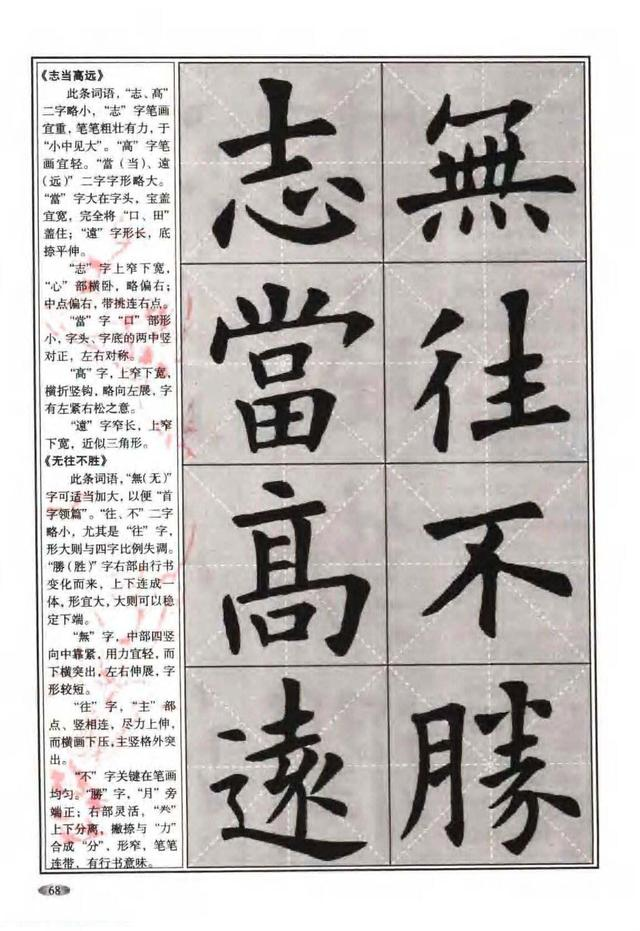 《志当高远》
此条词语，“志、高”
二字略小，“志”字笔画
宜重，笔笔粗壮有力，于
“小中见大”。“高”字笔
画宜轻。“當（当）、遠
（远）”二字字形略大。
“當”字大在字头，宝盖
宜宽，完全将“口、田”
盖住；“遠”字形长，底
捺平伸。
“志”字上窄下宽，
“心”部横卧，略偏右；
中点偏右，带挑连右点。
“當”字“口”部形
小，字头、字底的两中竖
对正，左右对称。
“高”字，上窄下宽，
横折竖钩，略向左展，字
有左紧右松之意。
“遠”字窄长，上窄
下宽，近似三角形。
《无往不胜》
此条词语，“無（无）”
字可适当加大，以便“首
字领篇”。“往、不”二字
略小，尤其是“往”字，
形大则与四字比例失调。
“勝（胜）”字右部由行书
变化而来，上下连成一
体，形宜大，大则可以稳
定下端。
“無”字，中部四竖
向中靠紧，用力宜轻，而
下横突出，左右伸展，字
形较短。
“往”字，“主”部
点、竖相连，尽力上伸，
而横画下压，主竖格外突
出。
“不”字关键在笔画
均匀。“勝”字，“月”旁
端正；右部灵活，“龹”
上下分离，撇捺与“力”
合成“分”，形窄，笔笔
连带，有行书意味。
無往不勝
志當高遠
68